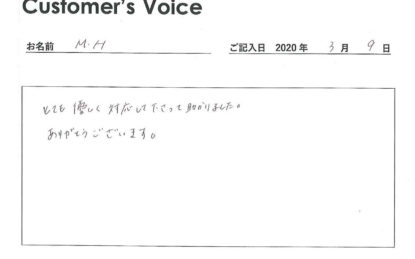 Customer's Voice
お名前 M.H ご記入日 2020年 3月 9日
とても優しく対応して下さって助かりました。
ありがとうございます。